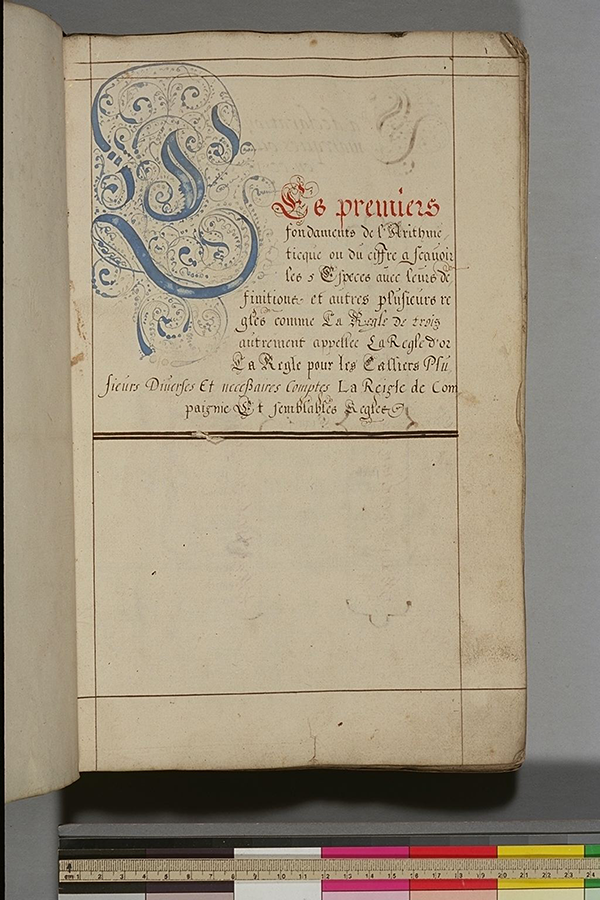 Les premiers
fondaments de l'Arithme
ticque ou du ciffre a scauoir
les 5 Especes auec leurs de
finitions et autres plusieurs re
gles comme La Regle de trois
autrement appellee La Regle d'or
La Regle pour les Calliers Plu
sieurs Diuerses Et necessaires Comptes La Reigle de Com
paignie Et semblables Regles